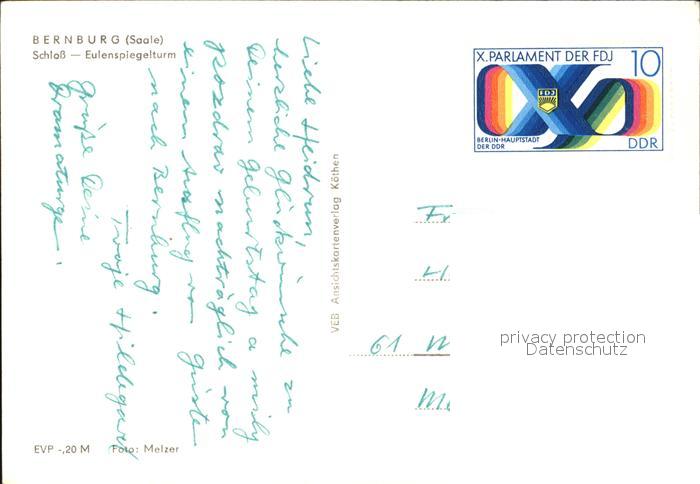 BERNBURG (Saale)
Schloß — Eulenspiegelturm
Liebe Heidrun!
herzliche Glückwünsche zu
Deinem Geburtstag a milý
pozdrav nachträglich von
einem Ausflug von
nach Bernburg.
Twoje Hildegard
Grüße Deine
Dramaturge.
EVP -,20 M Foto: Melzer
VEB Ansichtskartenverlag Köthen
X. PARLAMENT DER FDJ 10
FDJ
BERLIN-HAUPTSTADT
DER DDR
DDR
Fr
61 M
privacy protection
Datenschutz